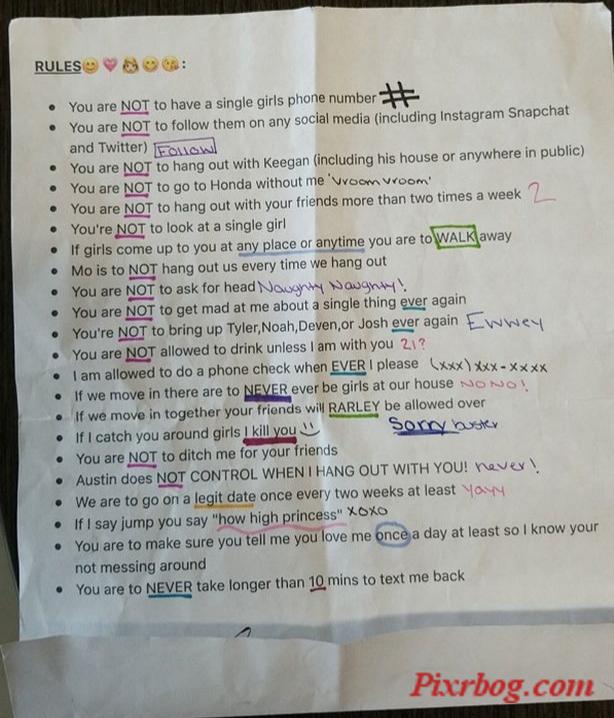 RULES😊💗👸😋😘:
• You are NOT to have a single girls phone number #
• You are NOT to follow them on any social media (including Instagram Snapchat
and Twitter) Follow
• You are NOT to hang out with Keegan (including his house or anywhere in public)
• You are NOT to go to Honda without me 'vroom vroom'
• You are NOT to hang out with your friends more than two times a week 2
• You're NOT to look at a single girl
• If girls come up to you at any place or anytime you are to WALK away
• Mo is to NOT hang out us every time we hang out
• You are NOT to ask for head Naughty Naughty!
• You are NOT to get mad at me about a single thing ever again
• You're NOT to bring up Tyler,Noah,Deven,or Josh ever again Ewwey
• You are NOT allowed to drink unless I am with you 21?
• I am allowed to do a phone check when EVER I please (xxx) xxx-xxxx
• If we move in there are to NEVER ever be girls at our house NO NO!
• If we move in together your friends will RARLEY be allowed over
• If I catch you around girls I kill you :) Sorry buster
• You are NOT to ditch me for your friends
• Austin does NOT CONTROL WHEN I HANG OUT WITH YOU! never!
• We are to go on a legit date once every two weeks at least Yayy
• If I say jump you say "how high princess" xoxo
• You are to make sure you tell me you love me once a day at least so I know your
not messing around
• You are to NEVER take longer than 10 mins to text me back
Pixrbog.com